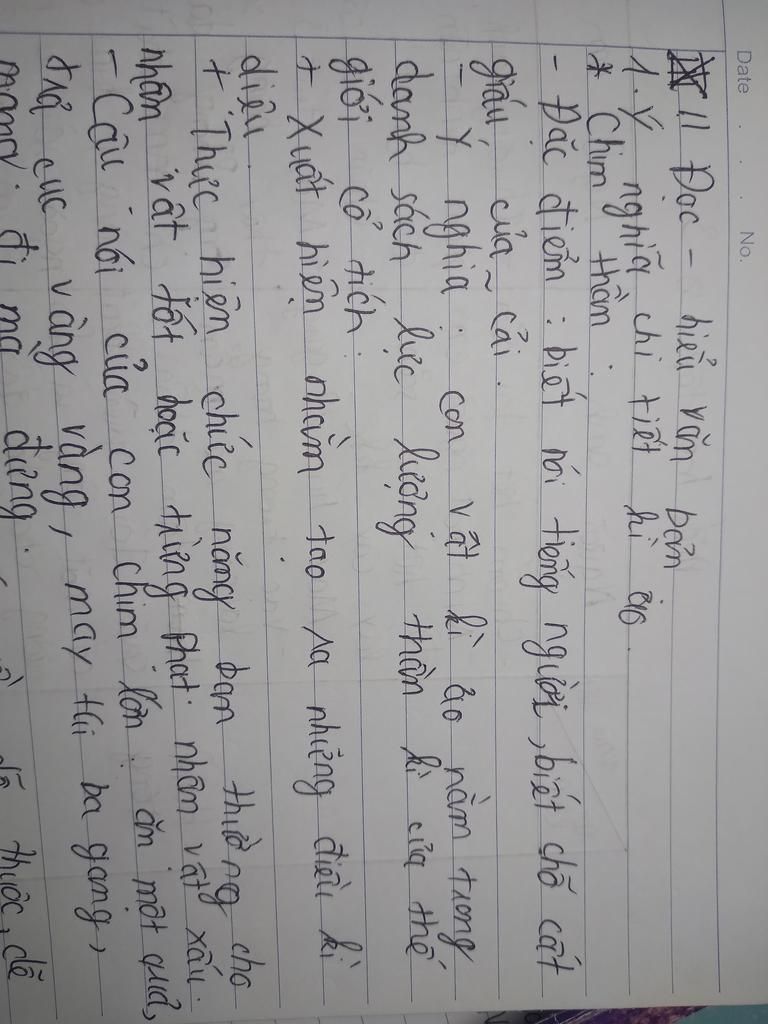 Date . . . No.
II Đọc - hiểu văn bản
1. Ý nghĩa chi tiết kì ảo.
* Chim thần:
- Đặc điểm: biết nói tiếng người, biết chỗ cất
giấu của cải.
- Ý nghĩa: con vật kì ảo nằm trong
danh sách lực lượng thần kì của thế
giới cổ tích.
+ Xuất hiện nhằm tạo ra những điều kì
diệu.
+ Thực hiện chức năng ban thưởng cho
nhân vật tốt hoặc trừng phạt nhân vật xấu.
- Câu nói của con chim lớn: ăn một quả,
trả cục vàng vàng, may túi ba gang,
mang đi mà đựng.
dễ thuộc, dễ